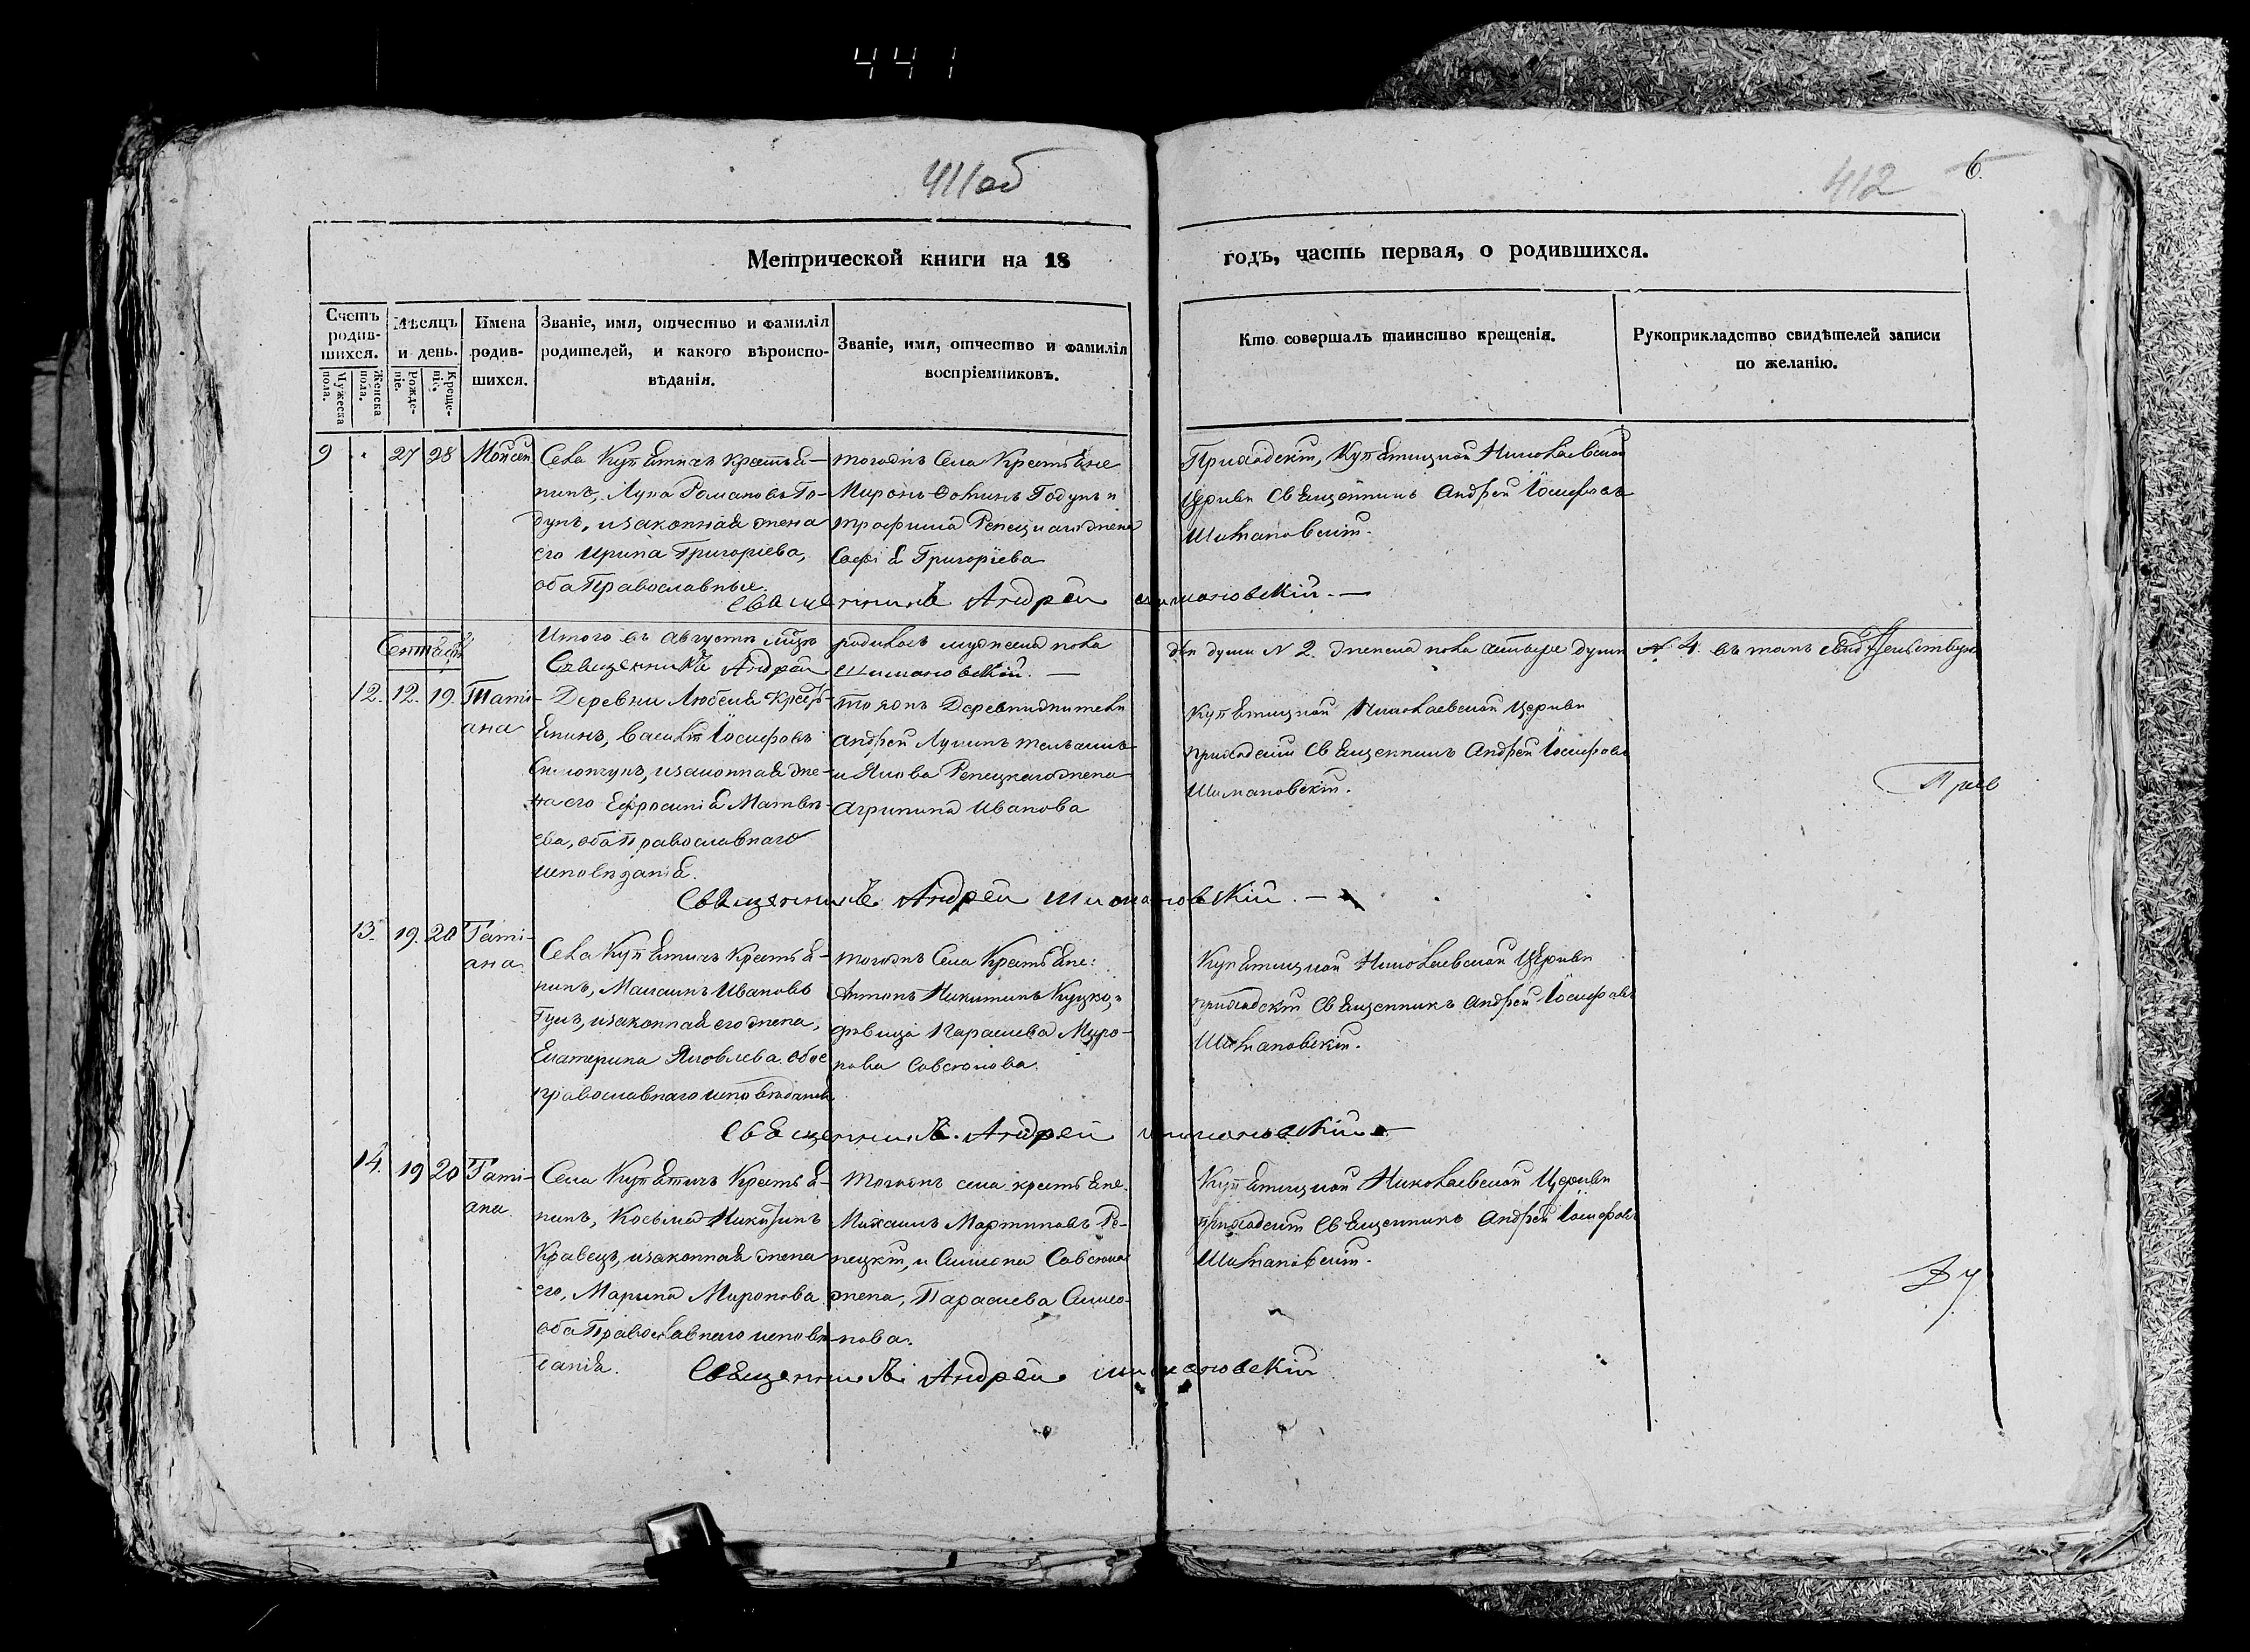 441
411об
412
6.
Метрической книги на 18
годъ, часть первая, о родившихся.
Счетъ родившихся.
Мужеска пола.
Женска пола.
Мѣсяцъ и день.
Рожденіе.
Крещеніе.
Имена родившихся.
Званіе, имя, отчество и фамилія родителей, и какого вѣроисповѣданія.
Званіе, имя, отчество и фамилія воспріемниковъ.
Кто совершалъ таинство крещенія.
Рукоприкладство свидѣтелей записи по желанію.
9 27 28 Моисей
Села Купятичъ Крестья-
нинъ, Лука Романовъ Го-
дунъ, изаконная жена
его Ирина Григоріева,
оба Православные.
тогожъ Села Крестьяне
Миронъ Фоминъ Годунъ и
Трофима Репецкаго жена
Софія Григоріева
Приходскій, Купятицкой Николаевской
Церкви Священникъ Андрей Іосифовъ
Шимановскій.
Священникъ Андрей Шимановскій. —
Итого въ Августѣ мцѣ родилось мужеска пола двѣ души N 2. женска пола четыре души N 4. въ томъ свидѣтельствую
Священникъ Андрей Шимановскій. —
Сентябрь
12. 12. 19. Тати-
ана
Деревни Любеля Крестъ-
янинъ, Василій Іосифовъ
изаконная же-
на его Ефросинія Матвѣ-
ева, оба Православнаго
исповѣданія.
тояжъ Деревни жители
Андрей Лукинъ
и Якова Репецкаго жена
Агрипина Иванова
Купятицкой Николаевской Церкви
приходскій Священникъ Андрей Іосифовъ
Шимановскій.
Священникъ Андрей Шимановскій. —
13. 19. 20 Тати-
ана
Села Купятичъ Крестья-
нинъ, Максимъ Ивановъ
изаконная его жена,
Екатерина Яковлева обое
православнаго исповѣданія
тогожъ Села Крестьяне:
Антонъ Никитинъ Куцко, и
дѣвица Параскева Миро-
нова Савсюкова.
Купятицкой Николаевской Церкви
приходскій Священникъ Андрей Іосифовъ
Шимановскій.
Священникъ Андрей Шимановскій
14. 19 20 Тати-
ана
Села Купятичъ Крестья-
нинъ, Косьма Никитинъ
Кравецъ, изаконная жена
его, Марина Миронова
оба Православнаго исповѣ-
данія.
тогожъ села крестьяне.
Михаилъ Мартиновъ Ре-
пецкій, и Симона Савсюка
жена, Параскева Симео-
нова.
Купятицкой Николаевской Церкви
приходскій Священникъ Андрей Іосифовъ
Шимановскій.
Священникъ Андрей Шимановскій